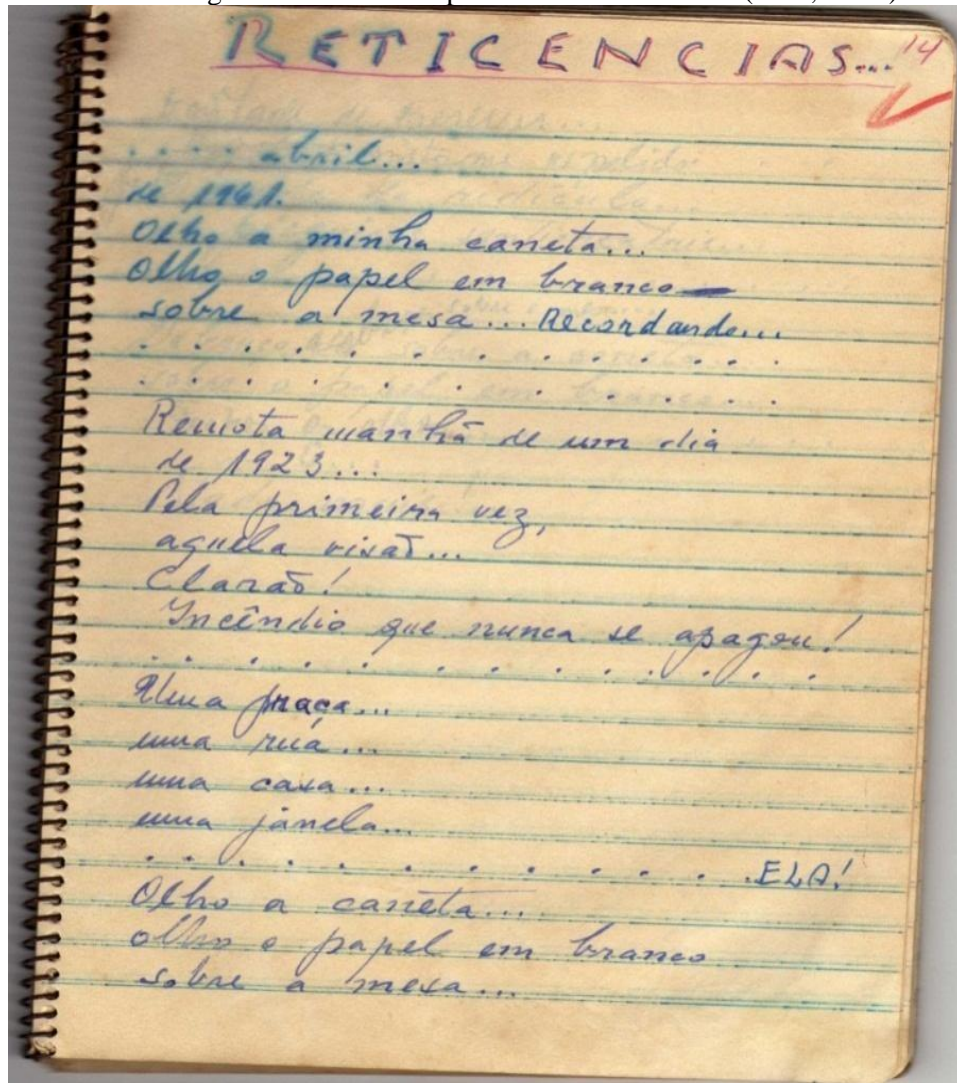 RETICENCIAS... 14
.... abril...
de 1961.
Olho a minha caneta...
olho o papel em branco —
sobre a mesa... Recordando...
. . . . . . . . . . . . .
. . . . . . . . . . . . .
Remota manhã de um dia
de 1923...
Pela primeira vez,
aquela visaõ...
Claraõ!
Incêndio que nunca se apagou!
. . . . . . . . . . . . .
Uma praça...
uma rua...
uma casa...
uma janela...
. . . . . . . . . . . . ELA!
Olho a caneta...
olho o papel em branco
sobre a mesa...